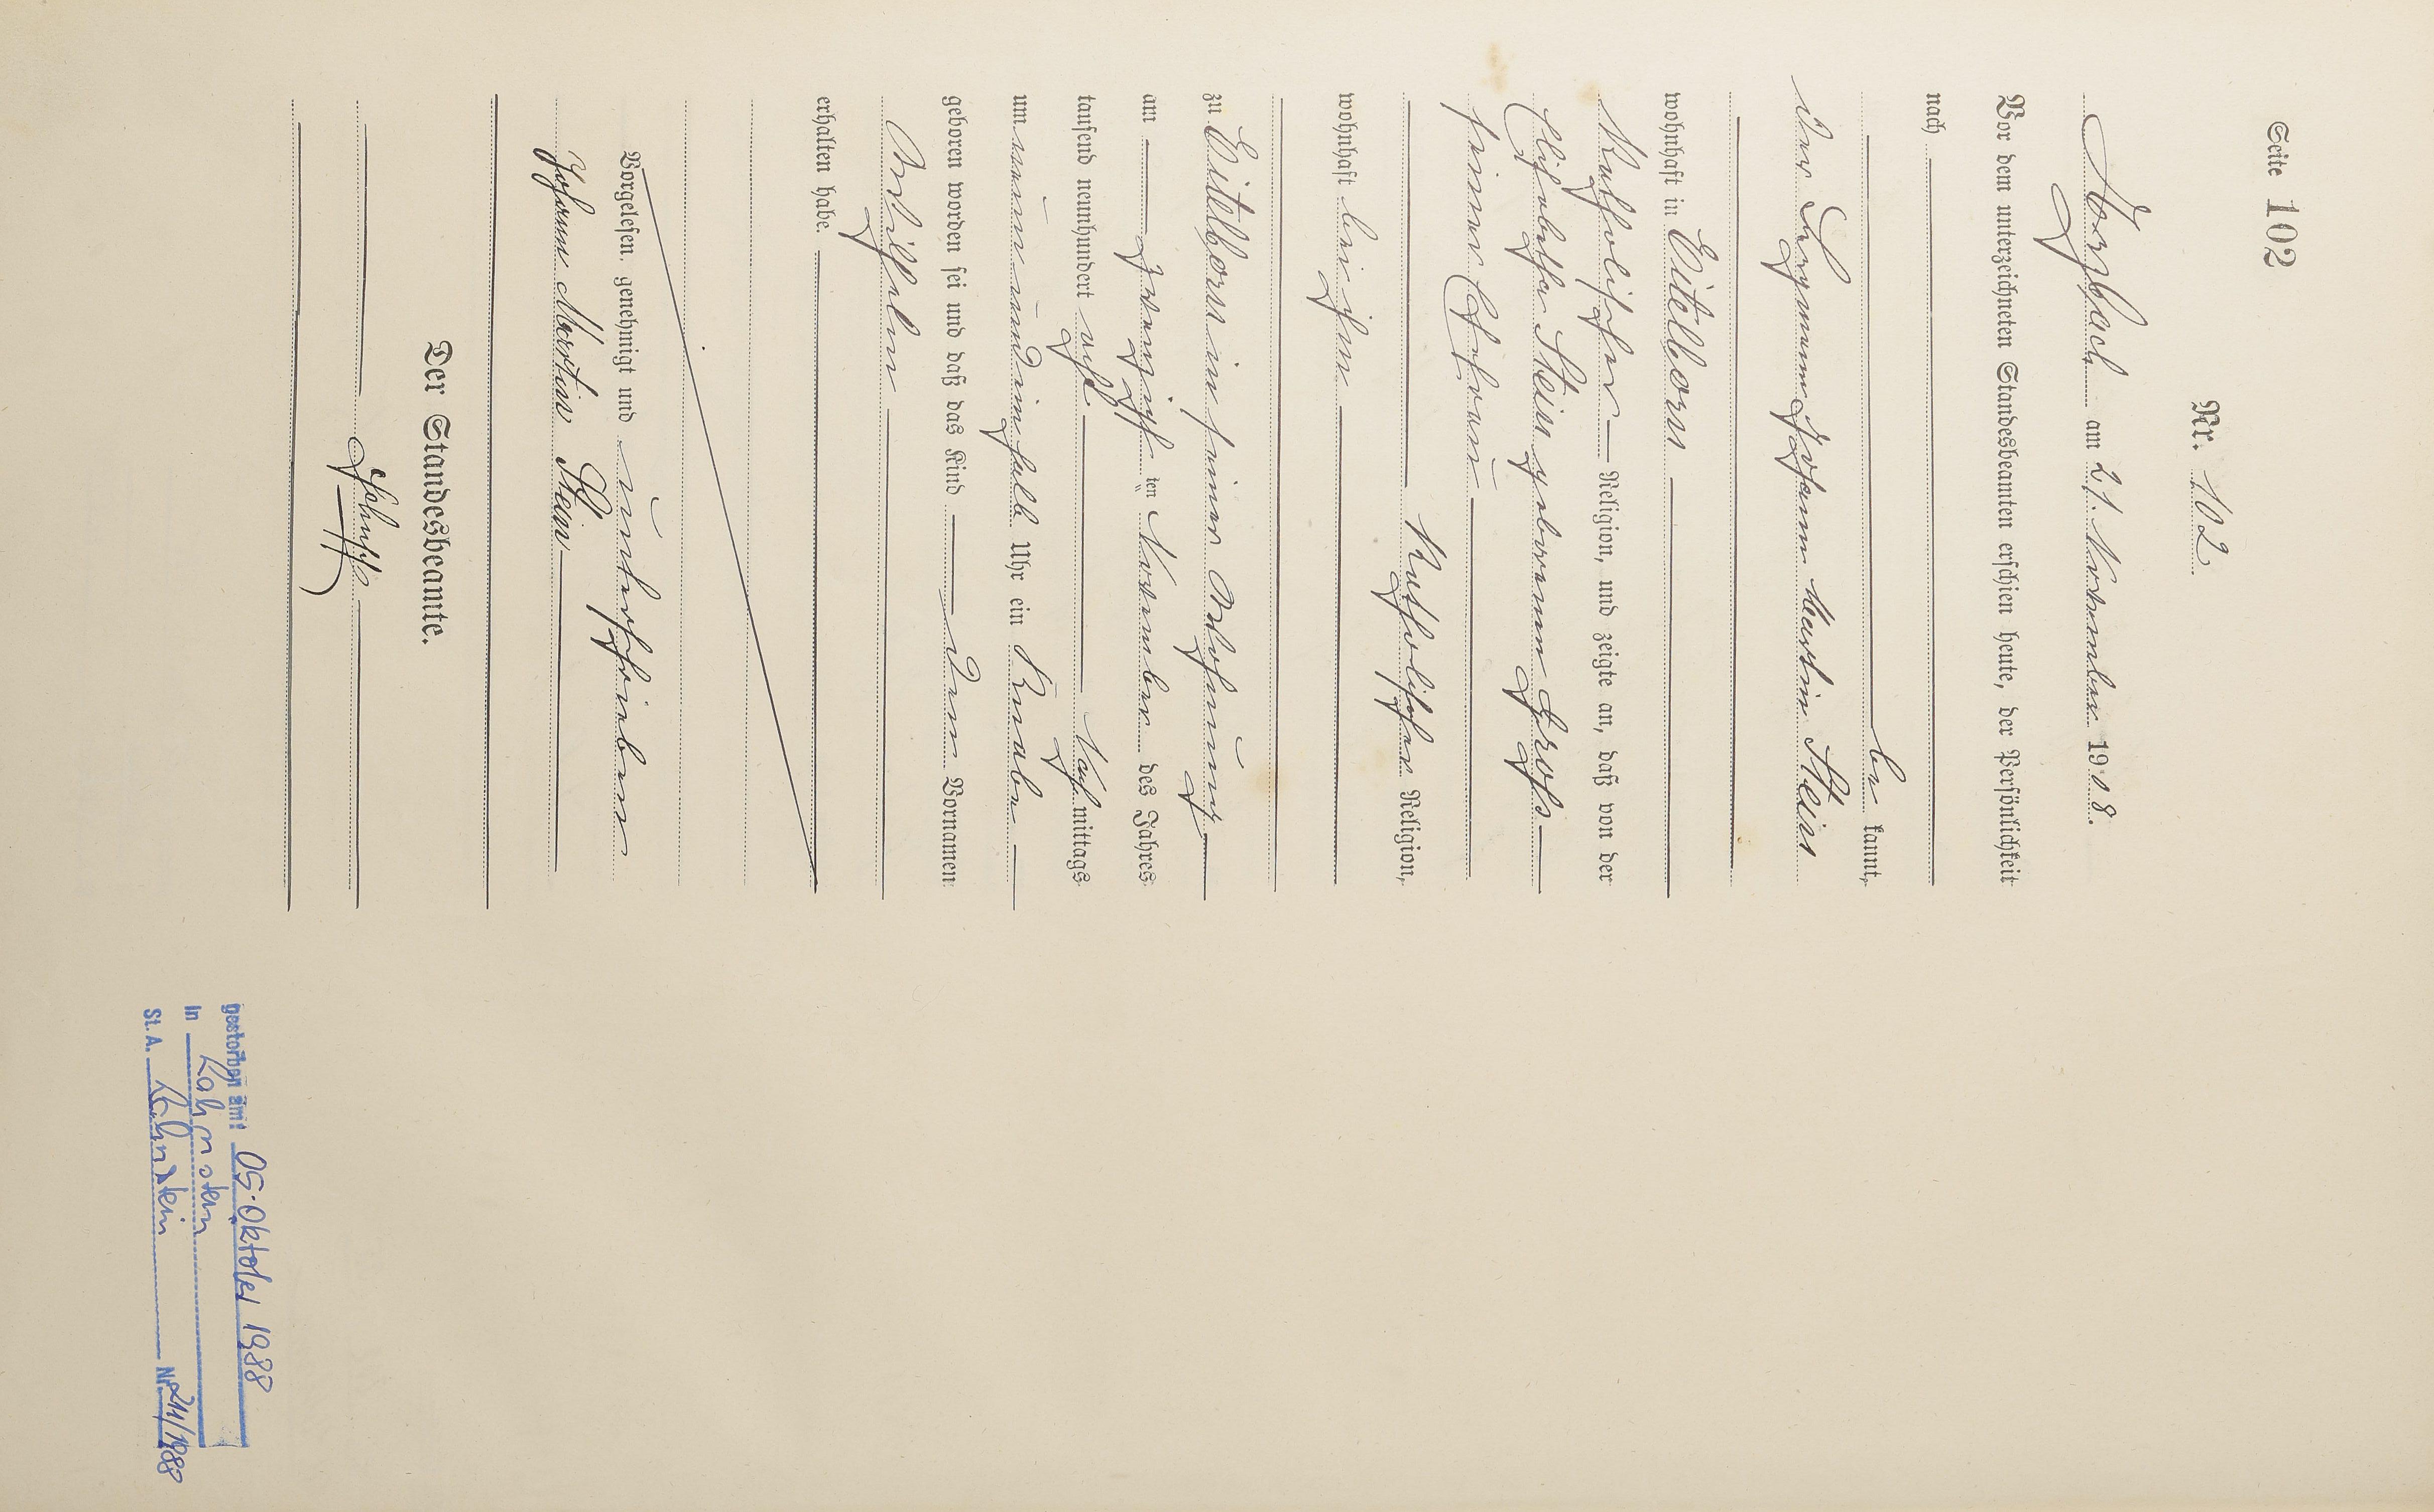 Seite 102
Nr. 102
Horbach am 21. November 1908.
Vor dem unterzeichneten Standesbeamten erschien heute, der Persönlichkeit
nach
be kannt,
der Bergmann Johann Martin Stein
wohnhaft in Eitelborn
Katholischer Religion, und zeigte an, daß von der
Elisabetha Stein geborenen Groß
seiner Ehefrau
Katholischer Religion,
wohnhaft bei ihm
zu Eitelborn in seiner Wohnung
am zwanzigsten November des Jahres
tausend neunhundert acht Nachmittags
um neun und einhalb Uhr ein Knabe
geboren worden sei und daß das Kind den Vornamen
Wilhelm
erhalten habe.
Vorgelesen, genehmigt und unterschrieben
Johann Martin Stein
Der Standesbeamte.
gestorben am: 05. Oktober 1988
in Lahnstein
St. A. Lahnstein Nr. 211/1988